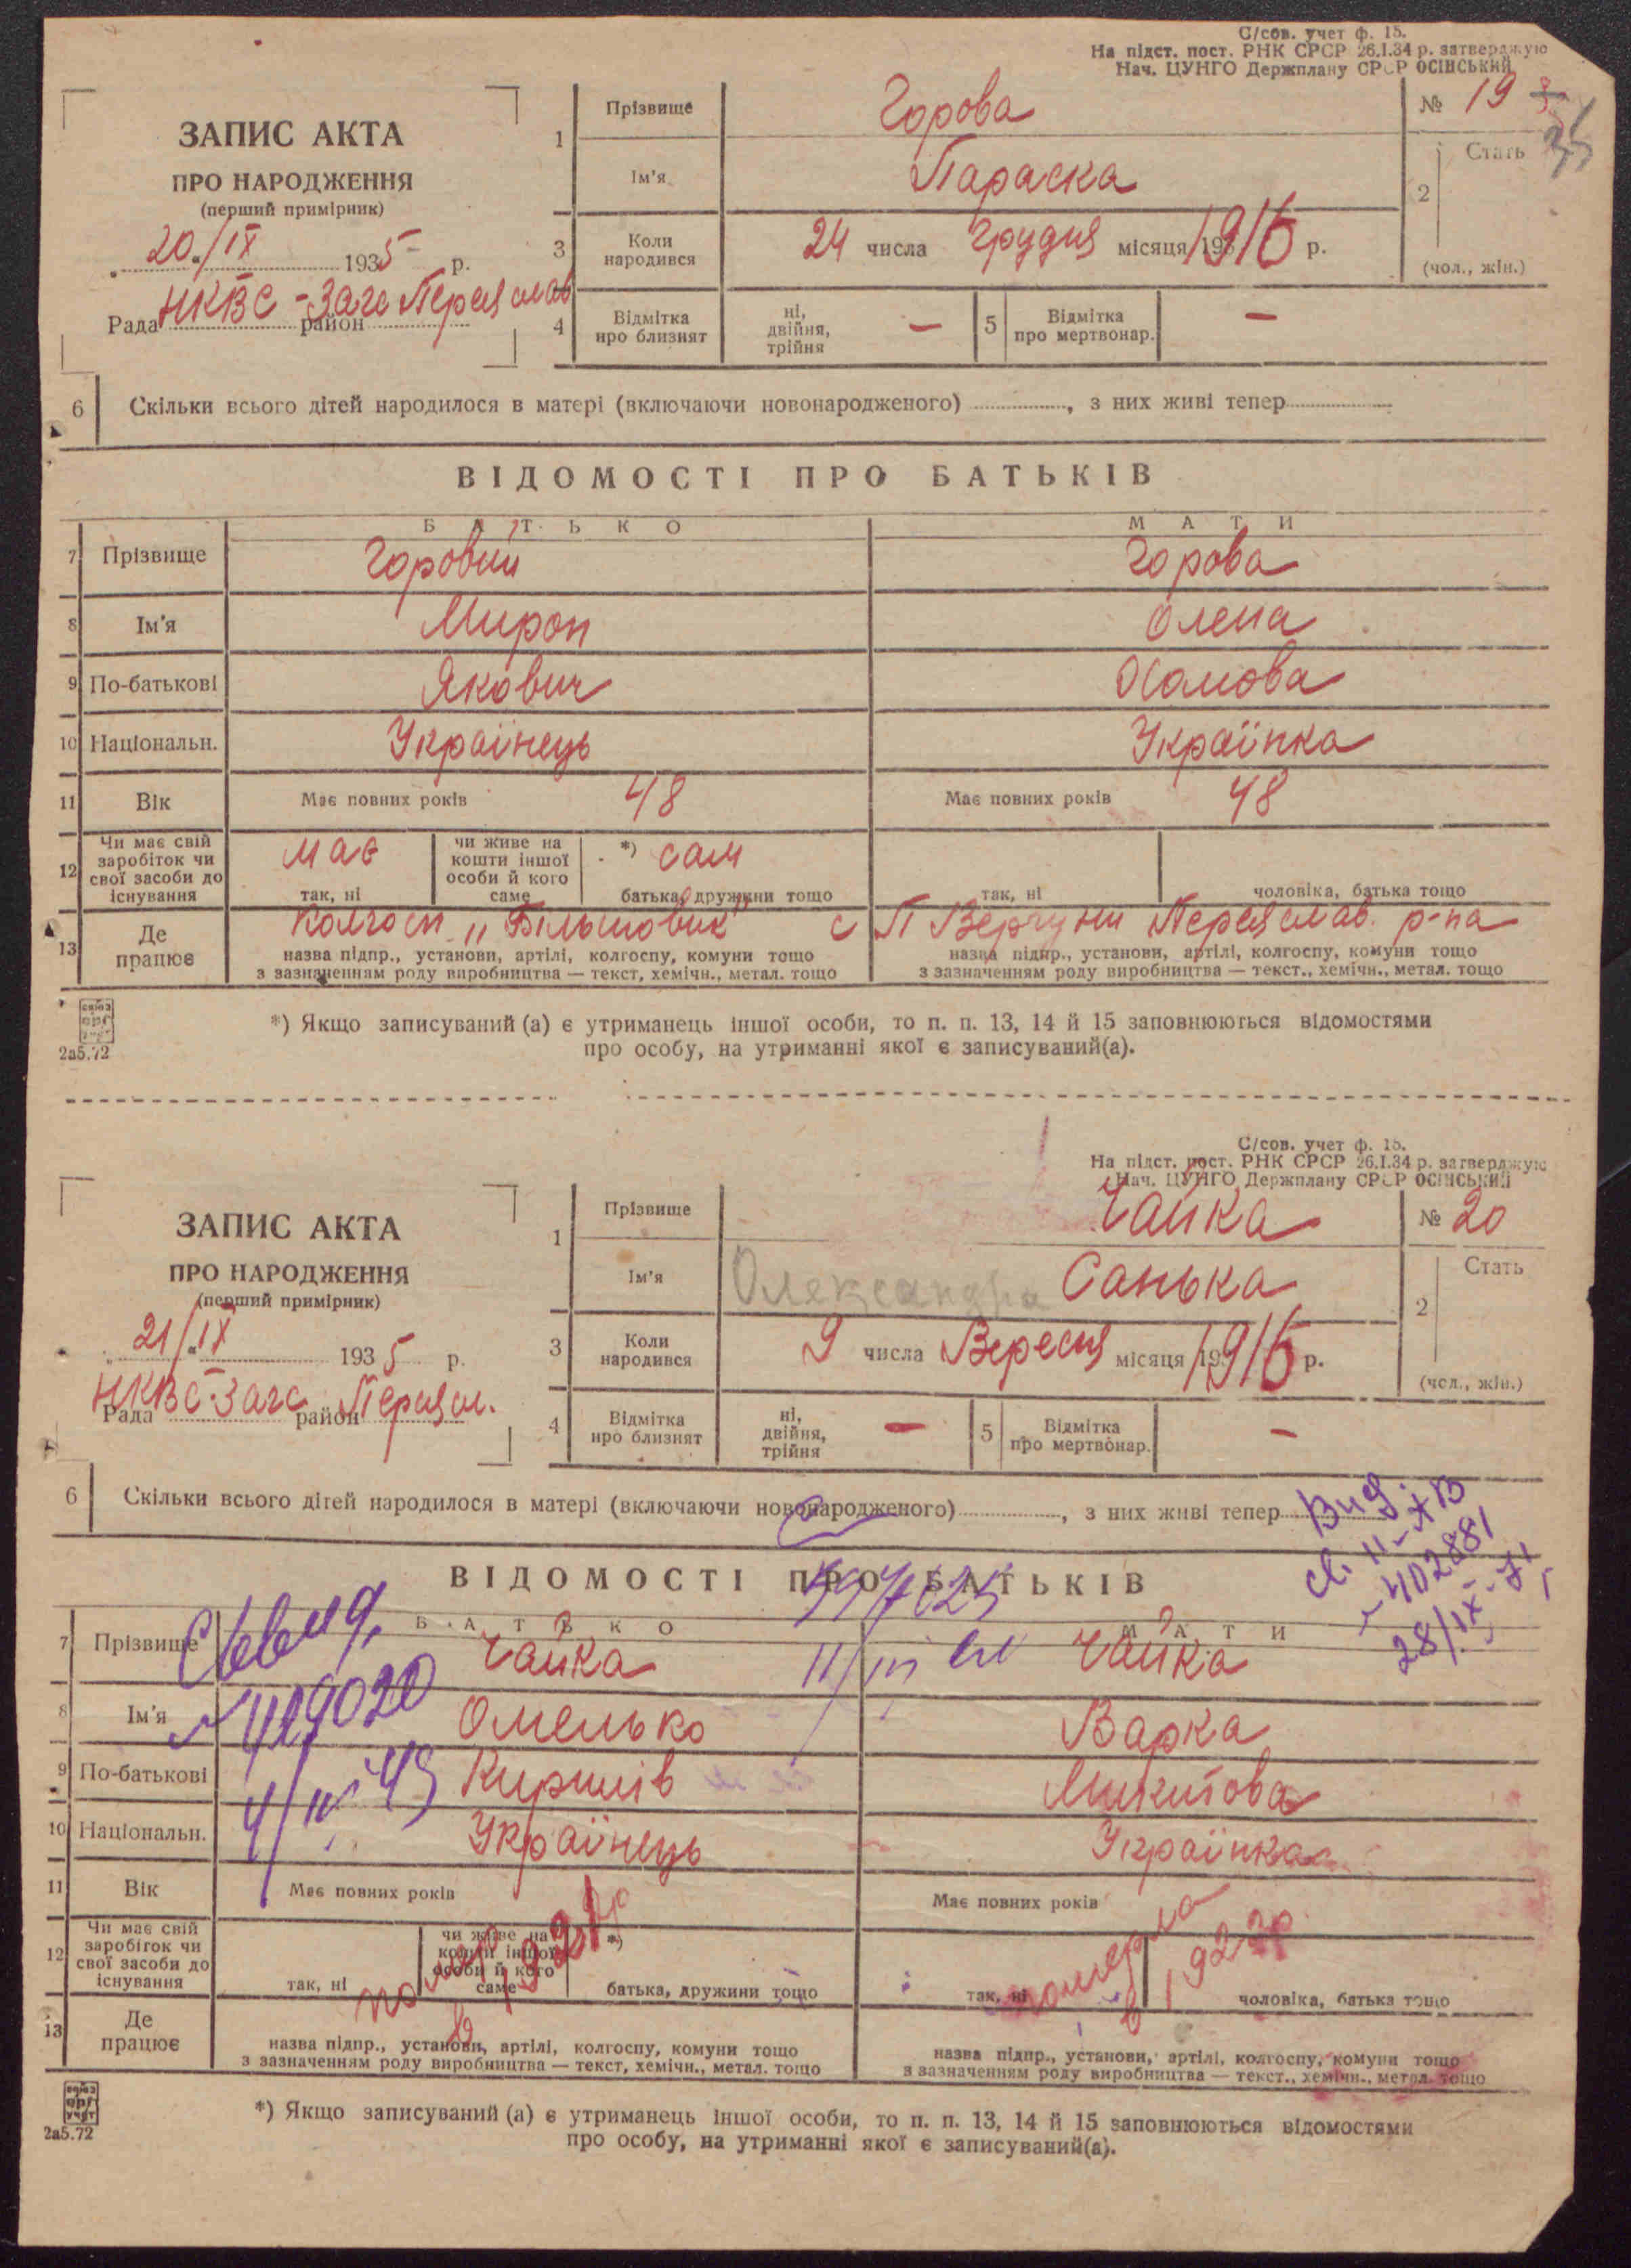 С/сов. учет ф. 15.
На підст. пост. РНК СРСР 26.I.34 р. затверджую
Нач. ЦУНГО Держплану СРСР ОСІНСЬКИЙ
ЗАПИС АКТА
ПРО НАРОДЖЕННЯ
(перший примірник)
20/IX 1935 р.
Рада НКВС - Загс Переяслав район
1 Прізвище Горова
№ 19
35
Ім'я Параска
2 Стать
(чол., жін.)
3 Коли народився 24 числа Грудня місяця 1916 р.
4 Відмітка про близнят ні, двійня, трійня —
5 Відмітка про мертвонар. —
6 Скільки всього дітей народилося в матері (включаючи новонародженого) ..., з них живі тепер
ВІДОМОСТІ ПРО БАТЬКІВ
БАТЬКО МАТИ
7 Прізвище Горовий Горова
8 Ім'я Мирон Олена
9 По-батькові Якович
10 Національн. Українець Українка
11 Вік Має повних років 48 Має повних років 48
12 Чи має свій заробіток чи свої засоби до існування має так, ні чи живе на кошти іншої особи й кого саме *) сам батька, дружини тощо так, ні чоловіка, батька тощо
13 Де працює Колгосп „Більшовик" с П Вергуни Переяслав. р-на
назва підпр., установи, артілі, колгоспу, комуни тощо назва підпр., установи, артілі, колгоспу, комуни тощо
з зазначенням роду виробництва — текст, хемічн., метал. тощо з зазначенням роду виробництва — текст., хемічн., метал. тощо
союз орг учет
2а5.72
*) Якщо записуваний (а) є утриманець іншої особи, то п. п. 13, 14 й 15 заповнюються відомостями
про особу, на утриманні якої є записуваний(а).
С/сов. учет ф. 15.
На підст. пост. РНК СРСР 26.I.34 р. затверджую
Нач. ЦУНГО Держплану СРСР ОСІНСЬКИЙ
ЗАПИС АКТА
ПРО НАРОДЖЕННЯ
(перший примірник)
21/IX 1935 р.
НКВС-Загс Переясл.
Рада район
1 Прізвище Чайка
№ 20
Ім'я Олександра Санька
2 Стать
(чол., жін.)
3 Коли народився 9 числа Вересня місяця 1916 р.
4 Відмітка про близнят ні, двійня, трійня —
5 Відмітка про мертвонар. —
6 Скільки всього дітей народилося в матері (включаючи новонародженого) ..., з них живі тепер
Вид.
св. II-ЯВ
402881
28/IX-71
ВІДОМОСТІ ПРО БАТЬКІВ
БАТЬКО МАТИ
7 Прізвище Чайка Чайка
8 Ім'я Омелько Варка
9 По-батькові Микитова
10 Національн. Українець Українка
11 Вік Має повних років Має повних років
12 Чи має свій заробіток чи свої засоби до існування так, ні чи живе на кошти іншої особи й кого саме *) батька, дружини тощо так, ні чоловіка, батька тощо
помер в 1921р померла в 1922р
13 Де працює
назва підпр., установи, артілі, колгоспу, комуни тощо назва підпр., установи, артілі, колгоспу, комуни тощо
з зазначенням роду виробництва — текст, хемічн., метал. тощо з зазначенням роду виробництва — текст., хемічн., метал. тощо
союз орг учет
2а5.72
*) Якщо записуваний (а) є утриманець іншої особи, то п. п. 13, 14 й 15 заповнюються відомостями
про особу, на утриманні якої є записуваний(а).